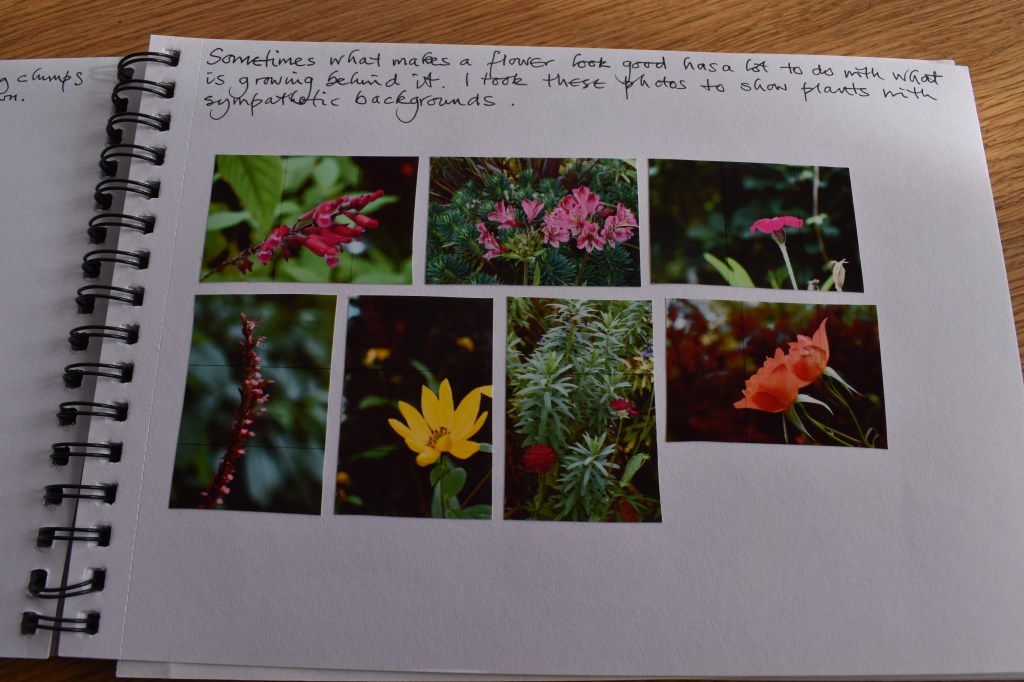 g clumps
on.
Sometimes what makes a flower look good has a lot to do with what
is growing behind it. I took these photos to show plants with
sympathetic backgrounds.